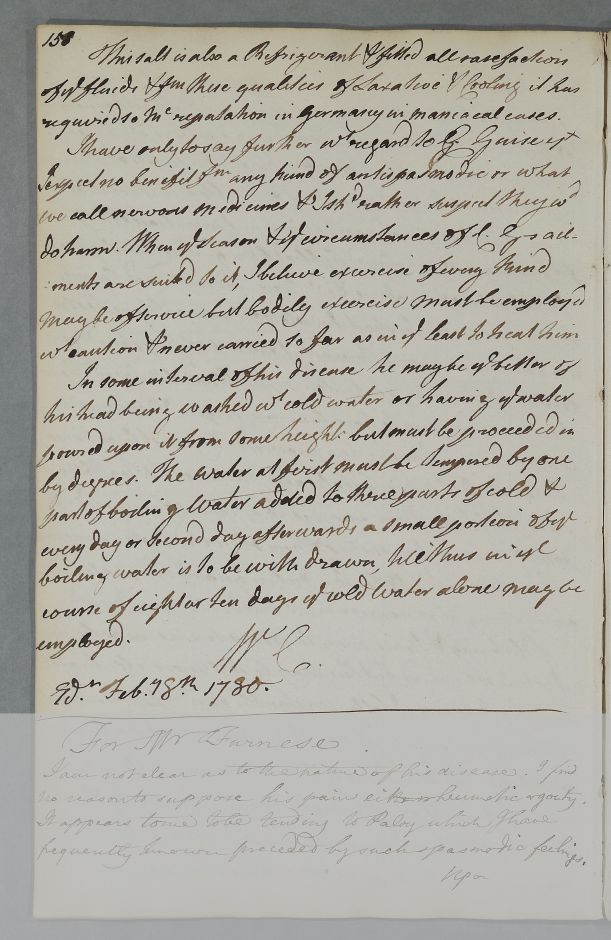 158
This salt is also a Refrigerant & fitted all rarefaction
of ye fluids & fm these qualities of Laxative & Cooling it has
acquired so Mc reputation in Germany in maniacal cases.
I have only to say further wt regard to C. Guise yt
I expect no benefit fm any kind of antispasmodic or what
we call nervous medicines & I shd rather suspect they wd
do harm. When ye Season & ye circumstances of C. G.s ail-
:ments are suited to it, I believe exercise of every kind
may be of service but bodily exercise must be employed
wt caution & never carried so far as in ye least to heat him
In some interval of his disease he may be ye better of
his head being washed wt cold water or having ye water
poured upon it from some height: but must be proceeded in
by degrees. The water at first must be tempered by one
part of boiling water added to three parts of cold &
every day or second day afterwards a small portion of ye
boiling water is to be withdrawn, till thus in ye
course of eight or ten days ye cold water alone may be
employed.
W C.
Edn. Feb. 18th 1780.
For Mr Furnese.
I am not clear as to the nature of his disease. I find
no reason to suppose his pain either rheumatic or gouty.
It appears to me to be tending to Palsy which I have
frequently known preceded by such spasmodic feelings.
Upon